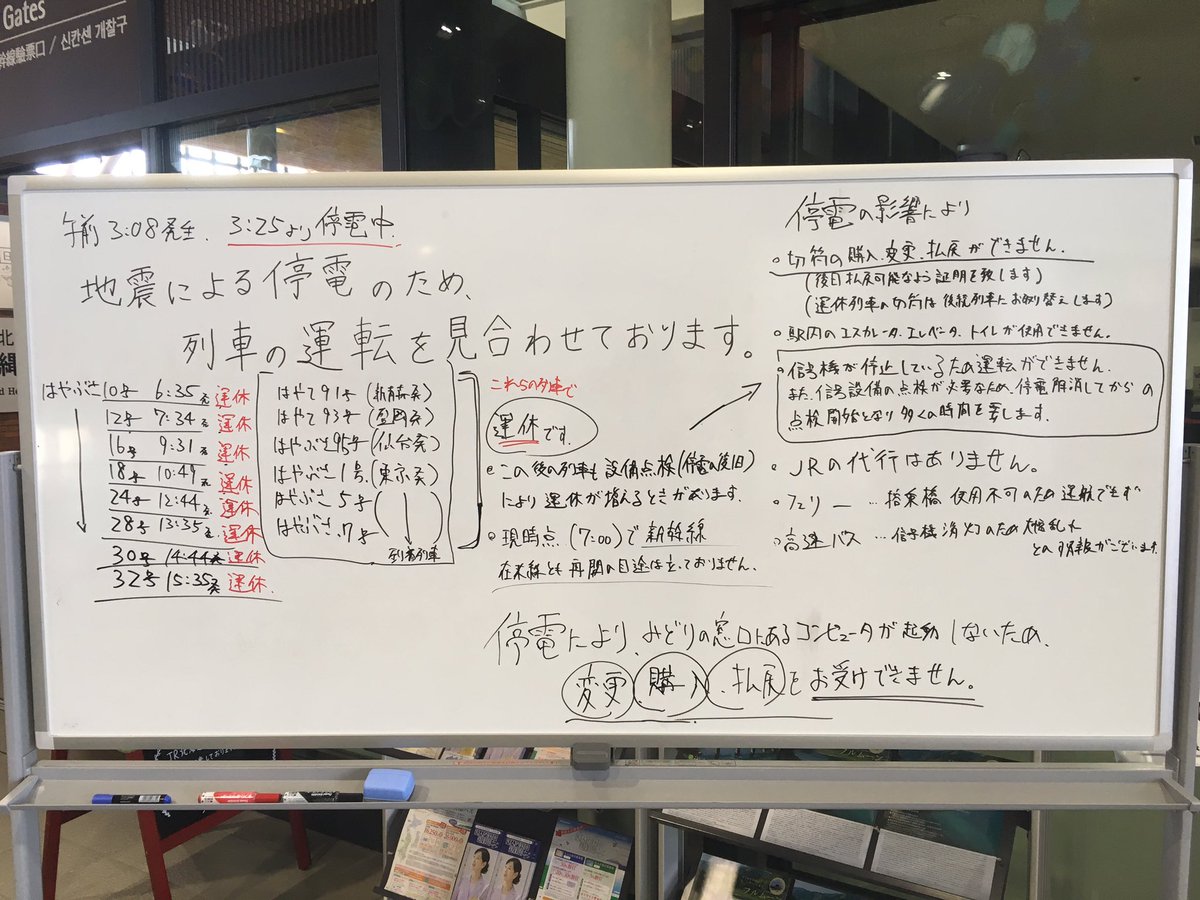 Gates
幹線驗票口 / 신칸센 개찰구
北
午前3:08発生、3:25より停電中
地震による停電のため、
列車の運転を見合わせております。
はやぶさ10号 6:35発 運休
12号 7:34発 運休
16号 9:31発 運休
18号 10:49発 運休
24号 12:44発 運休
28号 13:35発 運休
30号 14:44発 運休
32号 15:35発 運休
はやて91号(新青森発)
はやて93号(盛岡発)
はやぶさ95号(仙台発)
はやぶさ1号(東京発)
はやぶさ5号
はやぶさ7号
到着列車
これらの列車で
運休です。
この後の列車も設備点検(停電の復旧)
により運休が増えるときがあります。
・現時点(7:00)で新幹線
在来線とも再開の目途は立っておりません。
停電の影響により
・切符の購入、変更、払戻ができません。
(後日払戻可能なよう証明を致します)
(運休列車の切符は後続列車にお取り替えします)
・駅内のエスカレータ、エレベータ、トイレが使用できません。
・信号機が停止しているため運転ができません。
また、信号設備の点検が必要なため、停電解消してからの
点検開始となり多くの時間を要します。
・JRの代行はありません。
・フェリー …搭乗橋、使用不可のため運航できず
・高速バス …信号機消灯のため大混乱れ
との情報がございます。
停電により、みどりの窓口にあるコンピュータが起動しないため、
変更、購入、払戻をお受けできません。